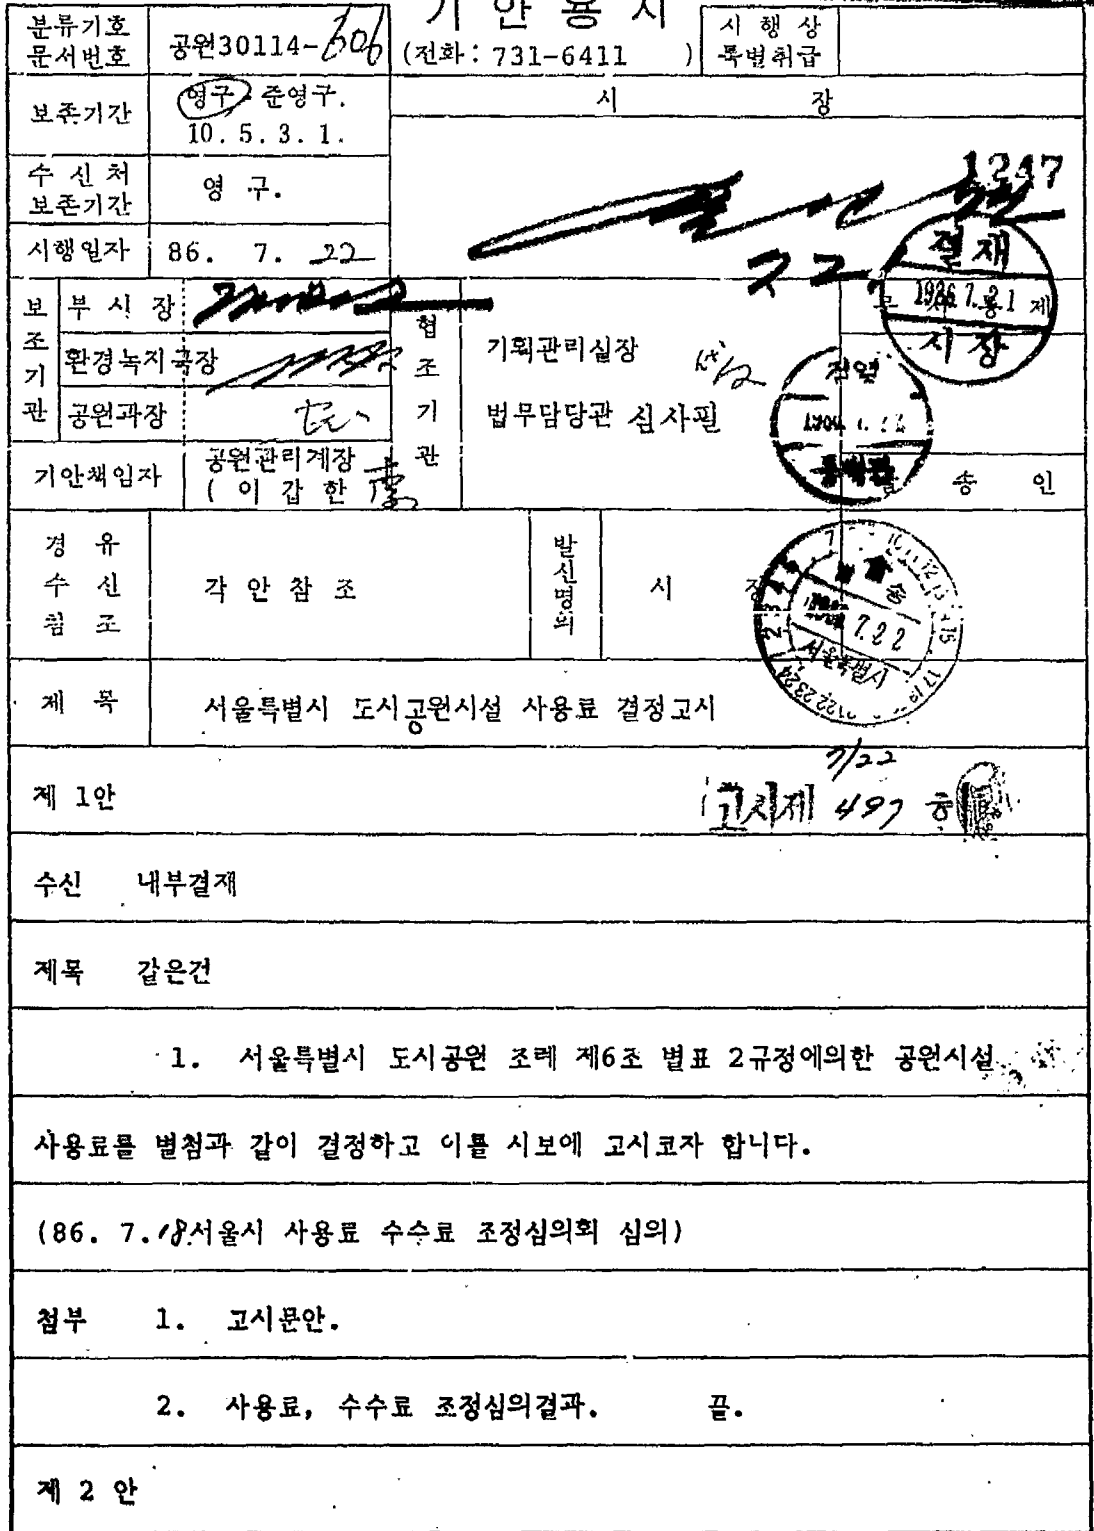 기안용지
분류기호
문서번호
공원30114-606
(전화: 731-6411 )
시 행 상
특별취급
보존기간
영구. 준영구.
10. 5. 3. 1.
시 장
수 신 처
보존기간
영 구.
시행일자
86. 7. 22
1247
22.
결재
1986 7. 21
시장
보조기관
부 시 장
환경녹지국장
공원과장
기안책임자
공원관리계장
( 이 갑 한
협조기관
기획관리실장
법무담당관 심사필
제
송 인
경 유
수 신
참 조
각 안 참 조
발신명의
시 장
발송
7.22
서울특별시
제 목
서울특별시 도시공원시설 사용료 결정고시
제 1안
7/22
고시제 497 호
수신 내부결재
제목 같은건
1. 서울특별시 도시공원 조례 제6조 별표 2규정에의한 공원시설
사용료를 별첨과 같이 결정하고 이를 시보에 고시코자 합니다.
(86. 7.18.서울시 사용료 수수료 조정심의회 심의)
첨부 1. 고시문안.
2. 사용료, 수수료 조정심의결과. 끝.
제 2 안